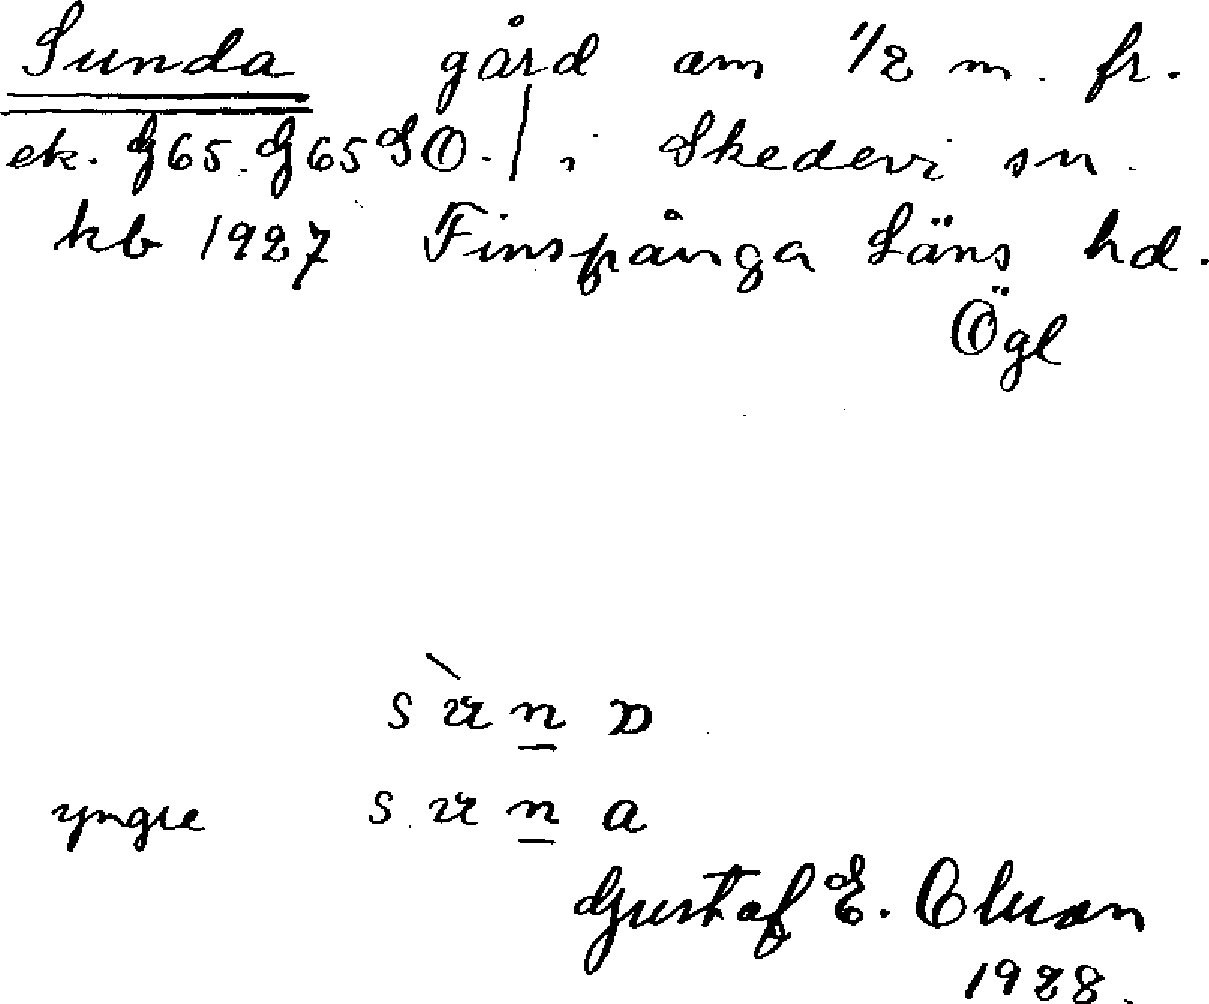 Sunda gård om 1/2 m. fr.
ek. G65. G65SO. | i Skedevi sn.
kb 1927 Finspånga Läns hd.
Ögl
yngre
Gustaf E.
1928.